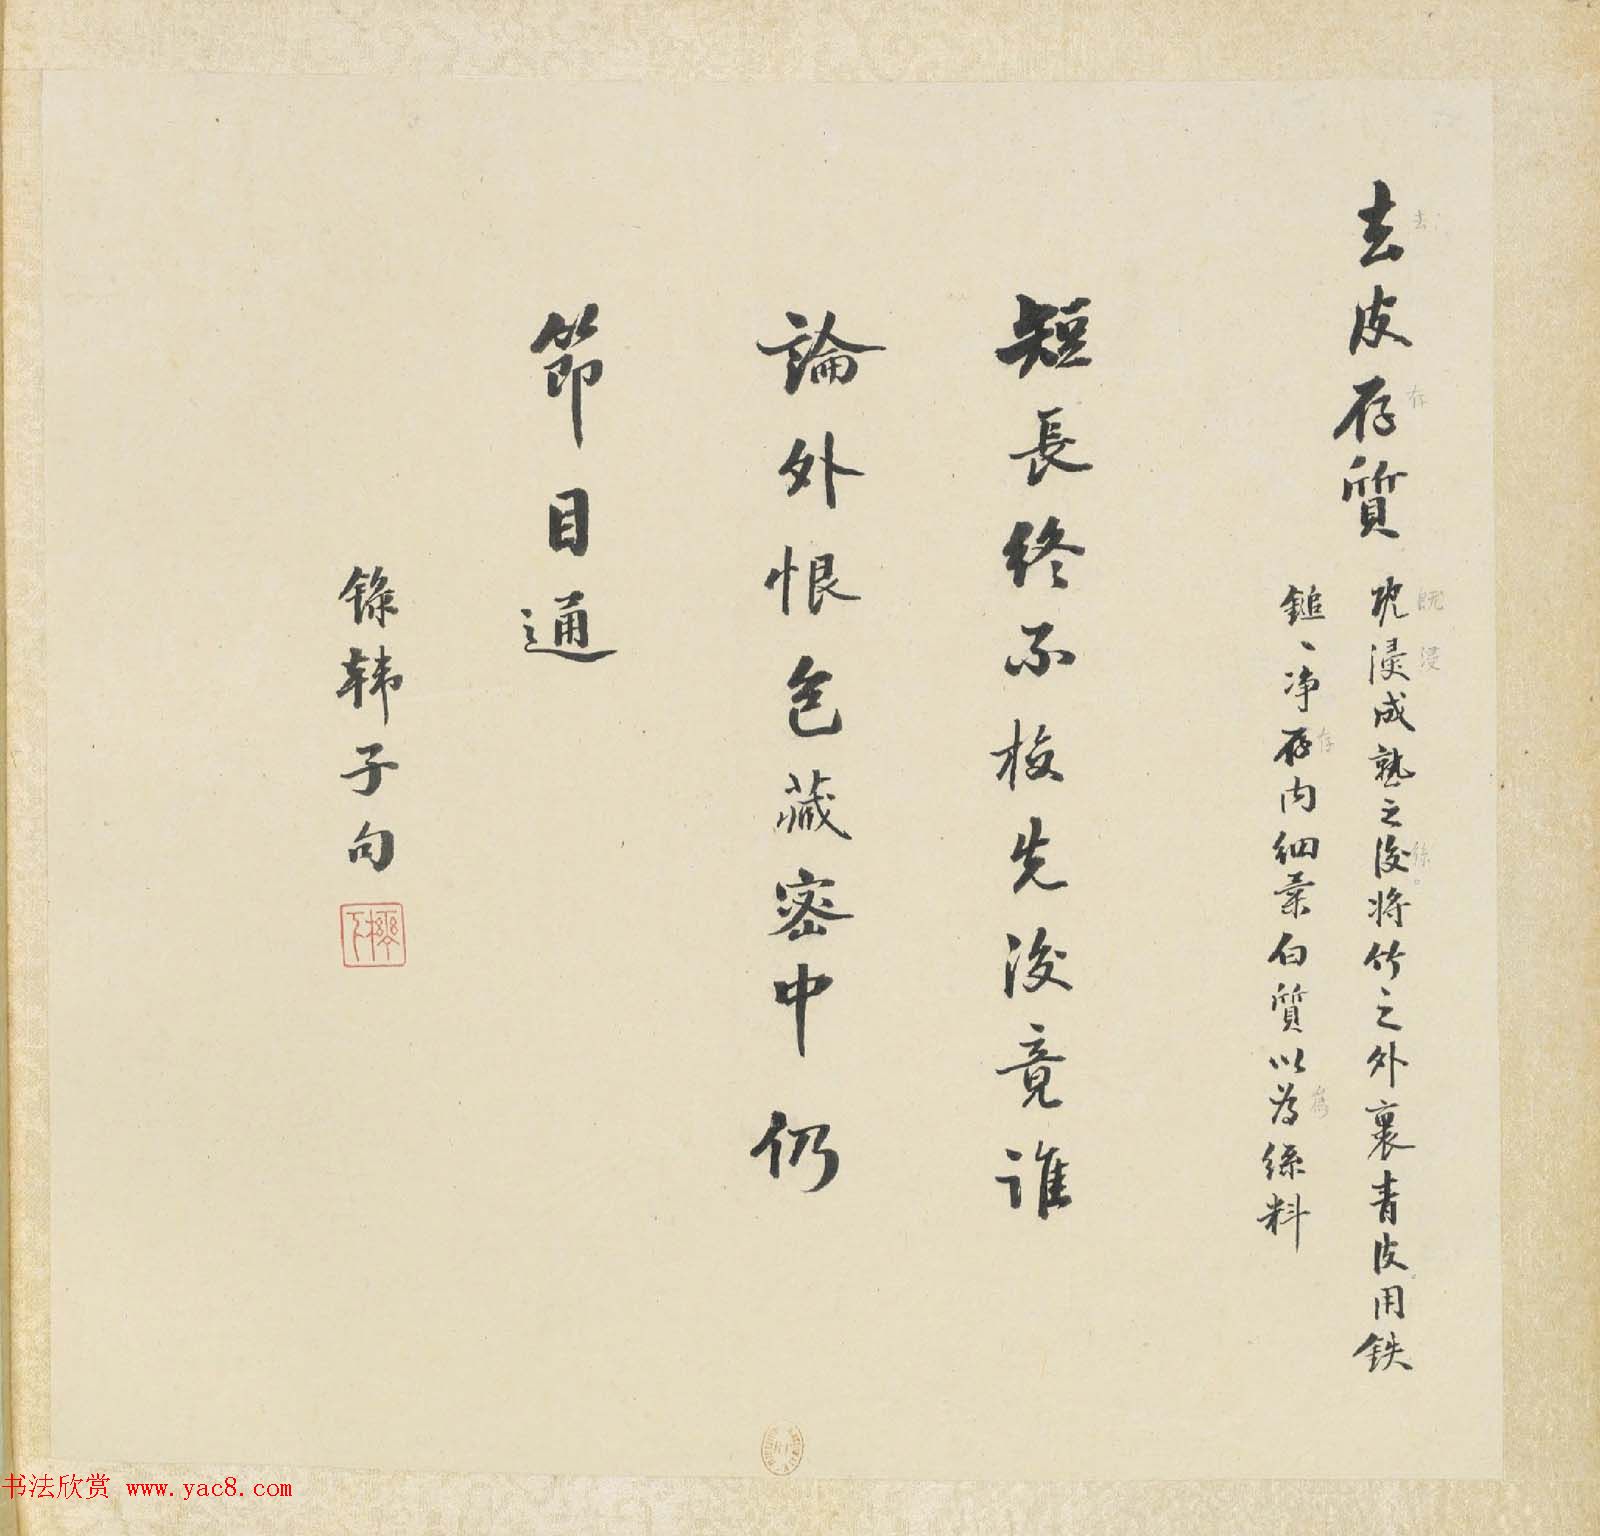 去皮存質
既浸成熟之後將竹之外裹青皮用鉄
鎚〻净存内細柔白質以為絲料
短長終不校先後竟誰
論外恨包藏密中仍
節目通
錄韓子句
去
存
既
浸
存
為
书法欣赏 www.yac8.com